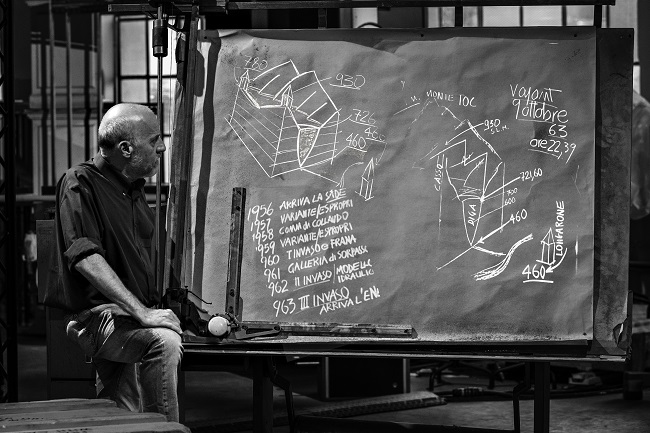 780
930
726
460
460
1956 ARRIVA LA SADE
1957 VARIANTE/ESPROPRI
1958 COMM. DI COLLAUDO
1959 VARIANTE/ESPROPRI
960 I INVASO FRANA
961 GALLERIA DI SORPASSO
962 II INVASO MODELLO IDRAULICO
963 III INVASO
ARRIVA L'EN
M. MONTE TOC
930
S.L.M.
CASSO
DIGA
721,60
700
600
460
VAJONT
9 ottobre
63
ore 22,39
LONGARONE
460